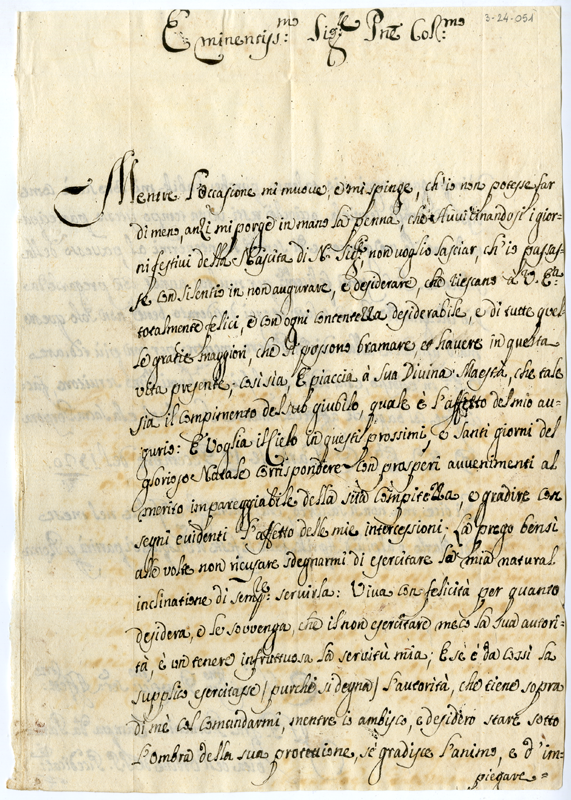 3-24-051
Eminentiss:mo Sig:re Pne Col:mo
Mentre l'occasione mi muove, e mi spinge, ch'io non potesse far
di meno anzi mi porge in mano la penna, che Avvicinandosi i gior-
ni festivi della Nascita di N. Sig:re, non voglio lasciar, ch'io passas-
se con silentio in non augurare, e desiderare, che riescano à V. E:za
totalmente felici, e con ogni contentezza desiderabile, e di tutte quel-
le gratie maggiori, che si possono bramare, et havere in questa
vita presente; così sia, E piaccia à Sua Divina Maestà, che tale
sia il compimento del suo giubilo, quale è l'affetto del mio au-
gurio: E voglia il Cielo in questi prossimi, e Santi giorni del
glorioso Natale corrispondere con prosperi avvenimenti al
merito impareggiabile della sua compitezza, e gradire con
segni evidenti l'affetto delle mie intercessioni; La prego bensì
alle volte non ricusare sdegnarmi di esercitare la mia natural
inclinatione di sem:re servirla: Viva con felicità per quanto
desidera, e le sovvenga, che il non esercitare meco la sua autori-
tà, è un tenere infruttuosa la servitù mia; E se è da cossì la
supplico esercitasse / purche si degna / l'autorità, che tiene sopra
di mè col comandarmi, mentre io ambisco, e desidero stare sotto
l'ombra della sua protettione, se gradisce l'animo, e d'im-
piegare